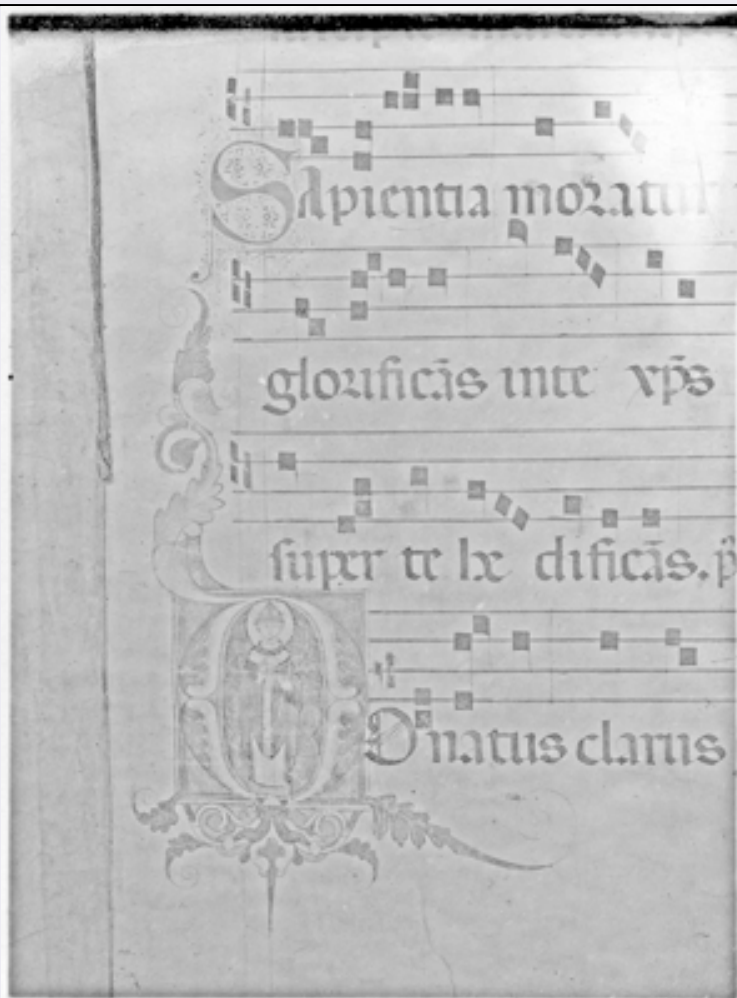 Sapientia moratur
glorificās inte xp̄s
super te hedificās. p̄
Donatus clarus